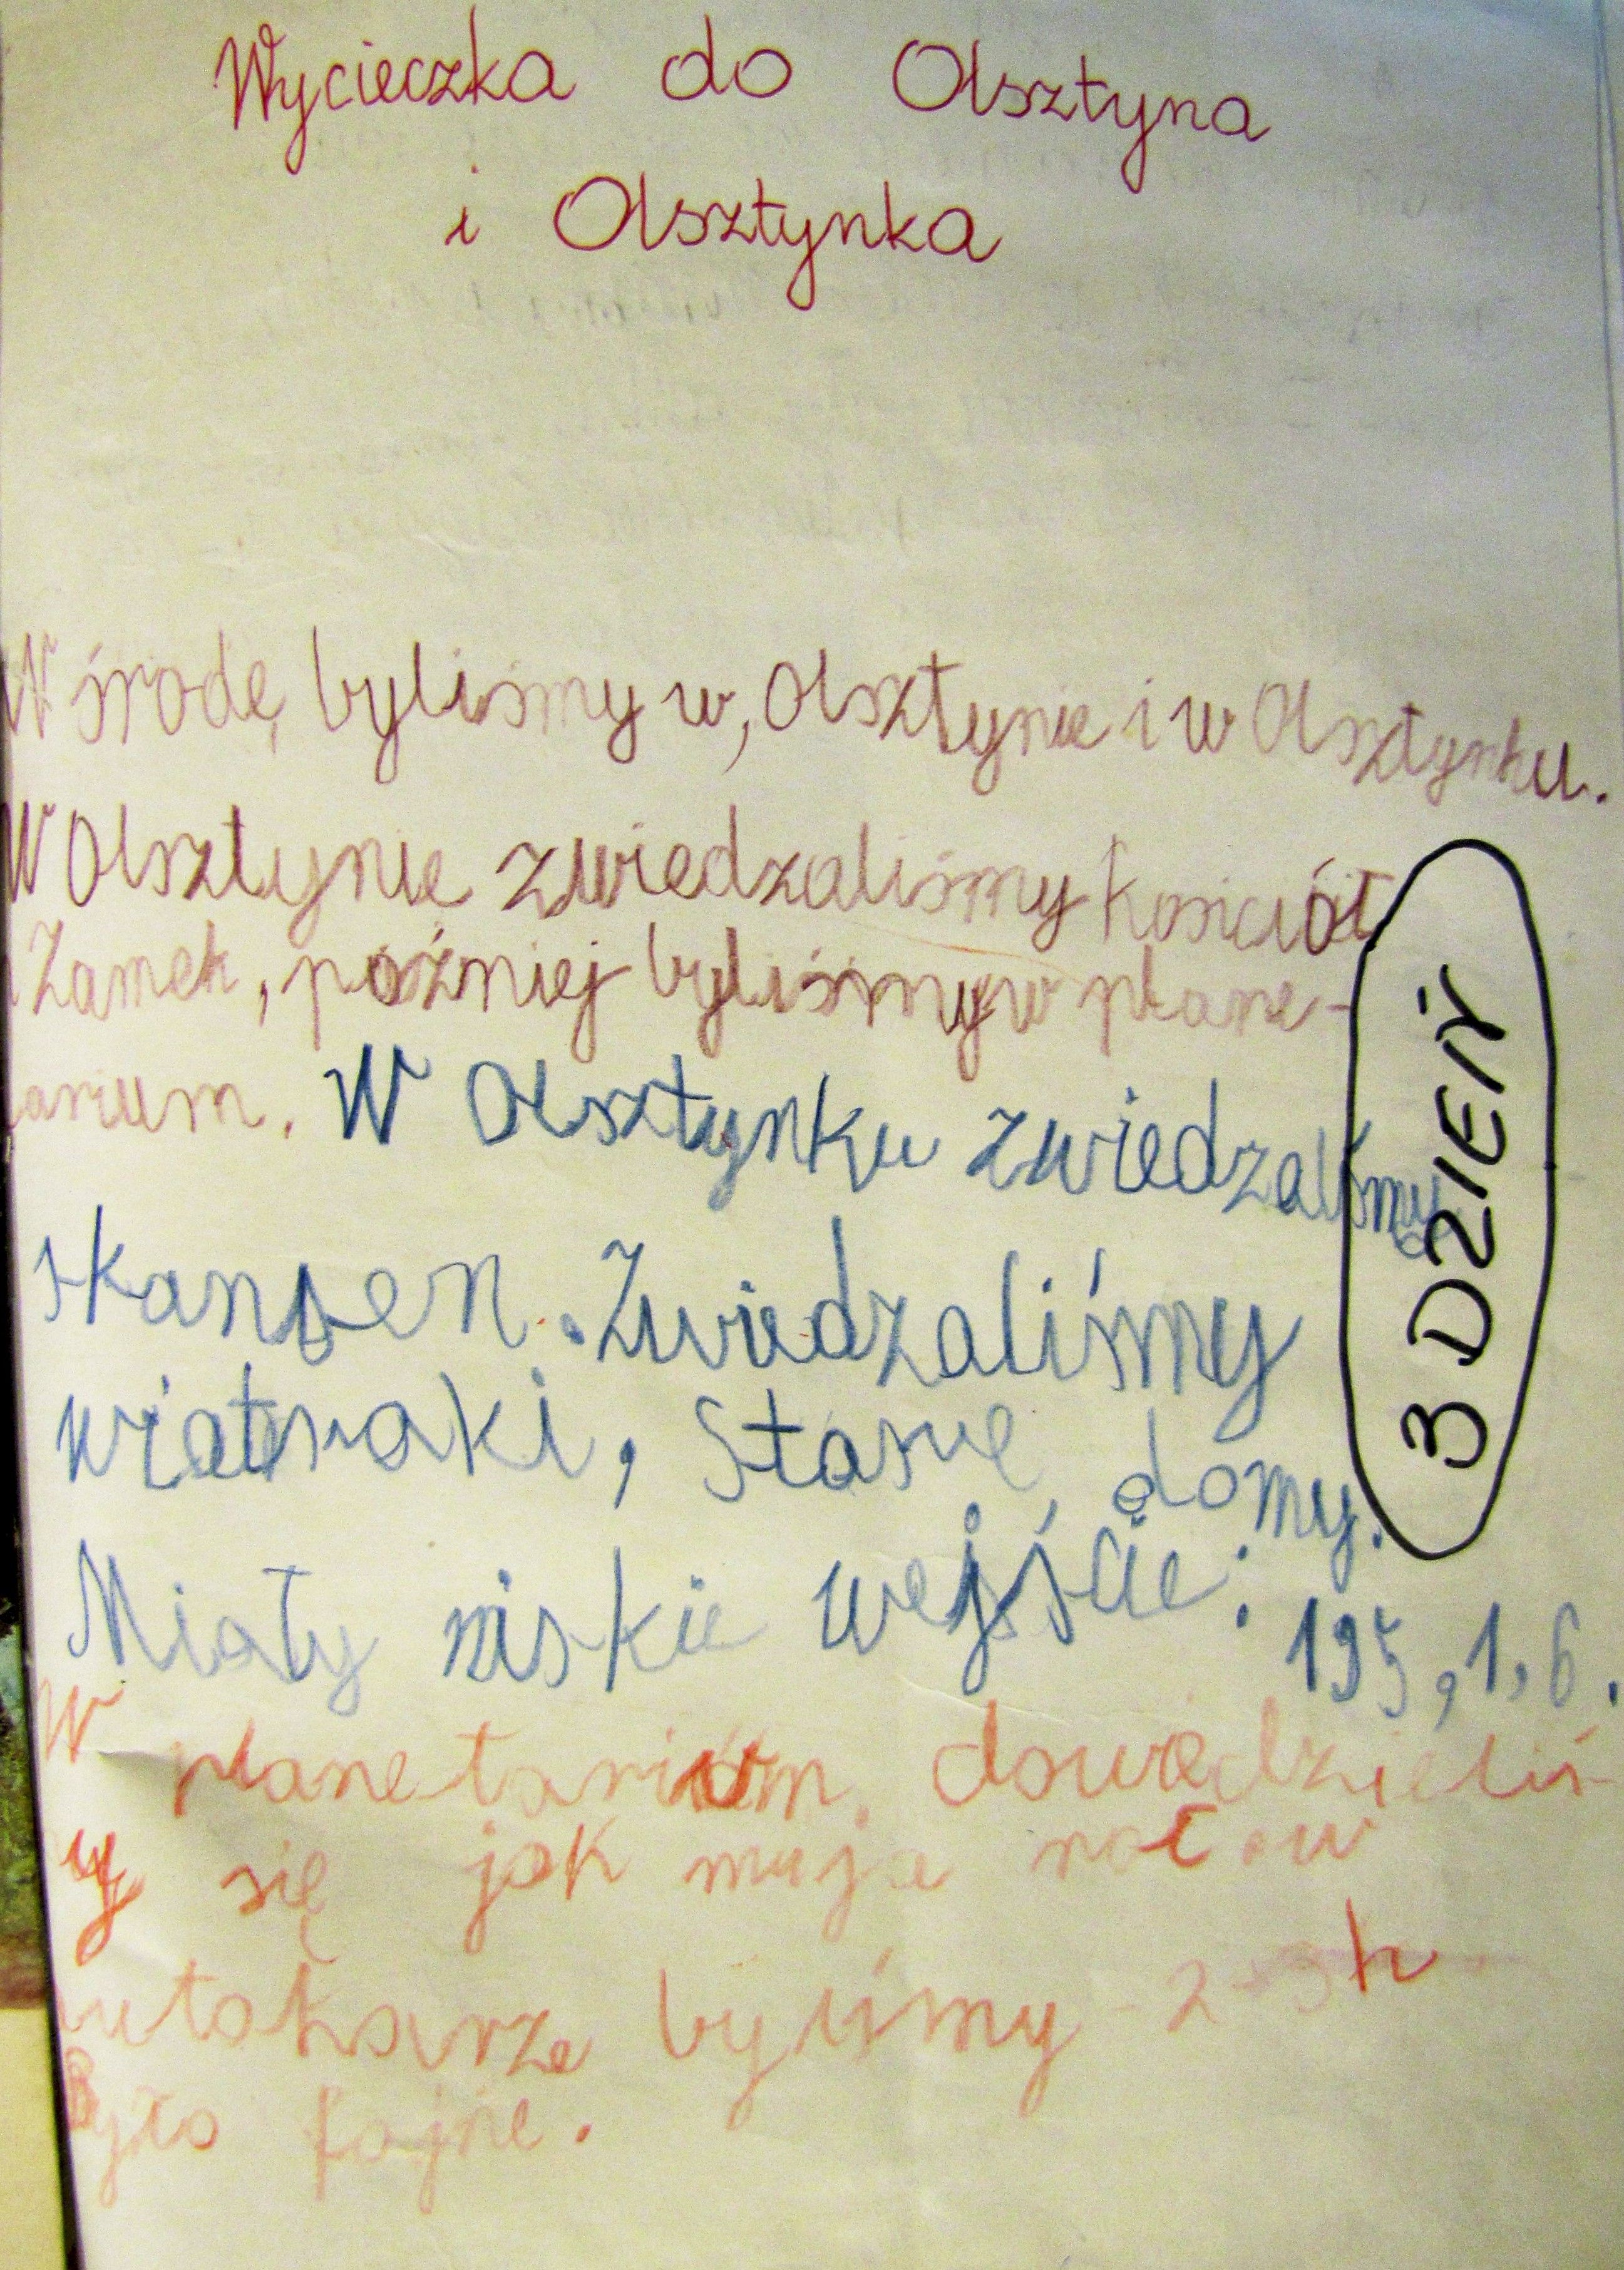 Wycieczka do Olsztyna
i Olsztynka
W środę byliśmy w, Olsztynie i w Olsztynku.
W Olsztynie zwiedzaliśmy kościół
i Zamek, później byliśmy w plane-
tarium. W Olsztynku zwiedzaliśmy
skansen. Zwiedzaliśmy
wiatraki, Stare domy.
Miały niskie wejście: 195, 1,6.
W planetarium dowiedzieliś-
my się jak mija noc. w
autokarze byliśmy 2-3h
Było fajne.
3 DZIEŃ